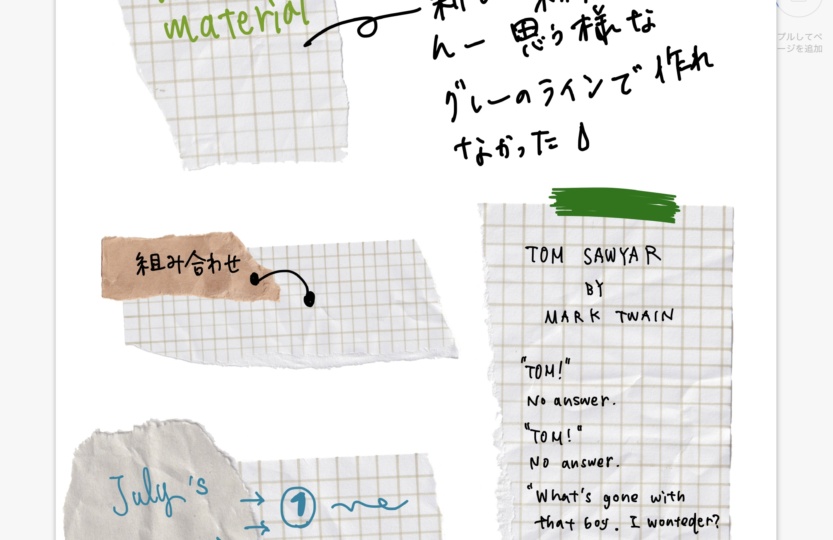 material
んー 思う様な
グレーのラインで 作れ
なかった
組み合わせ
TOM SAWYAR
BY
MARK TWAIN
"TOM!"
No answer.
"TOM!"
No answer.
"What's gone with
that boy. I wonteder?
July's
→ ① me
→
プルしてペ
ージを追加